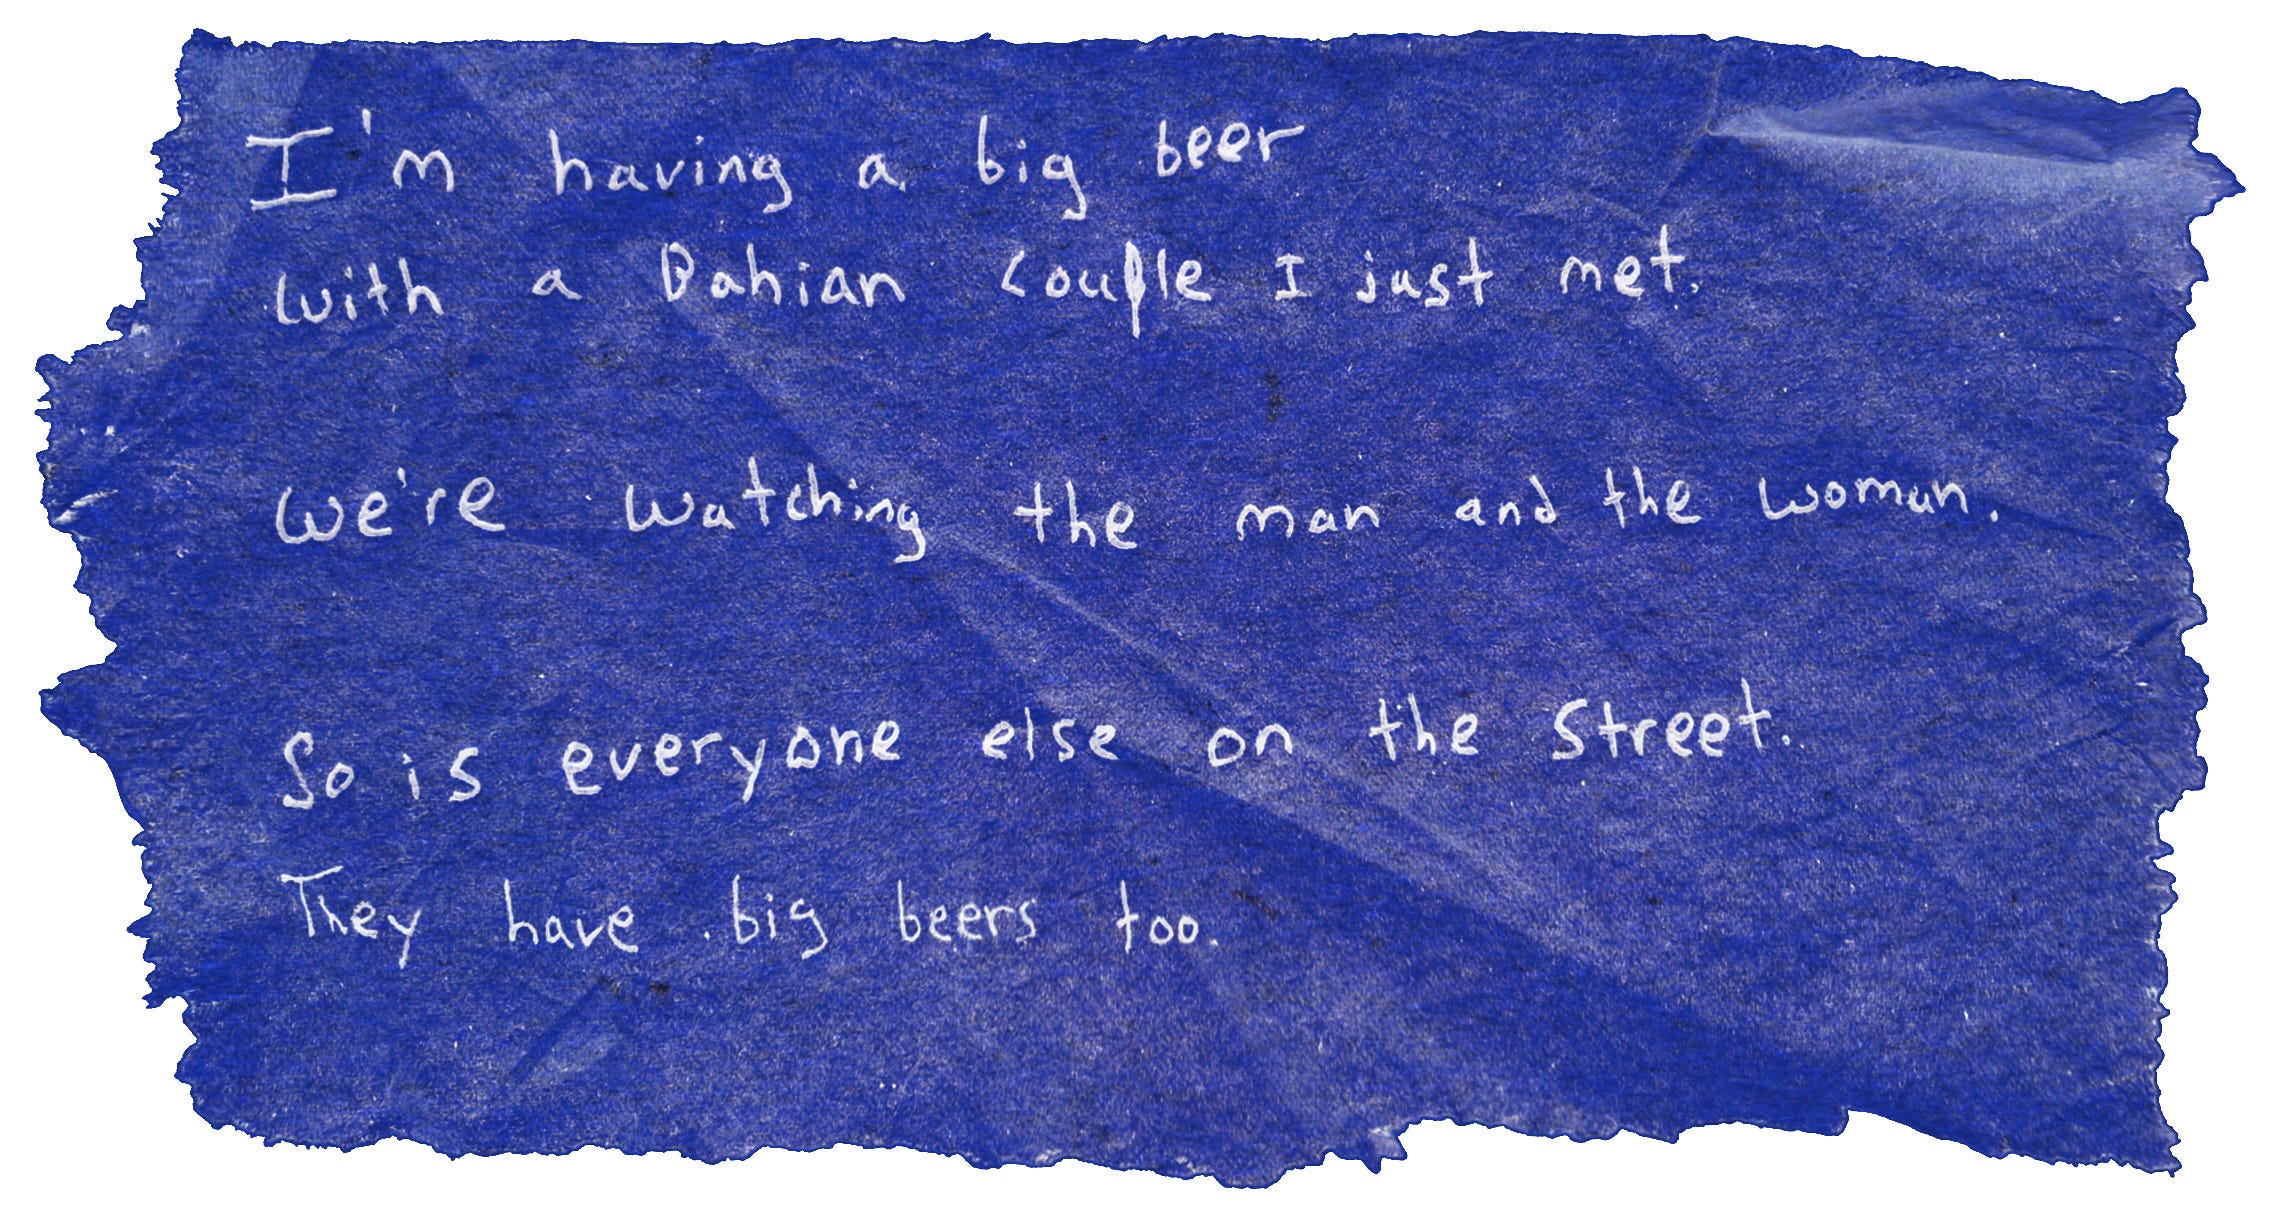 I'm having a big beer
with a Bahian couple I just met.
We're watching the man and the woman.
So is everyone else on the street.
They have big beers too.